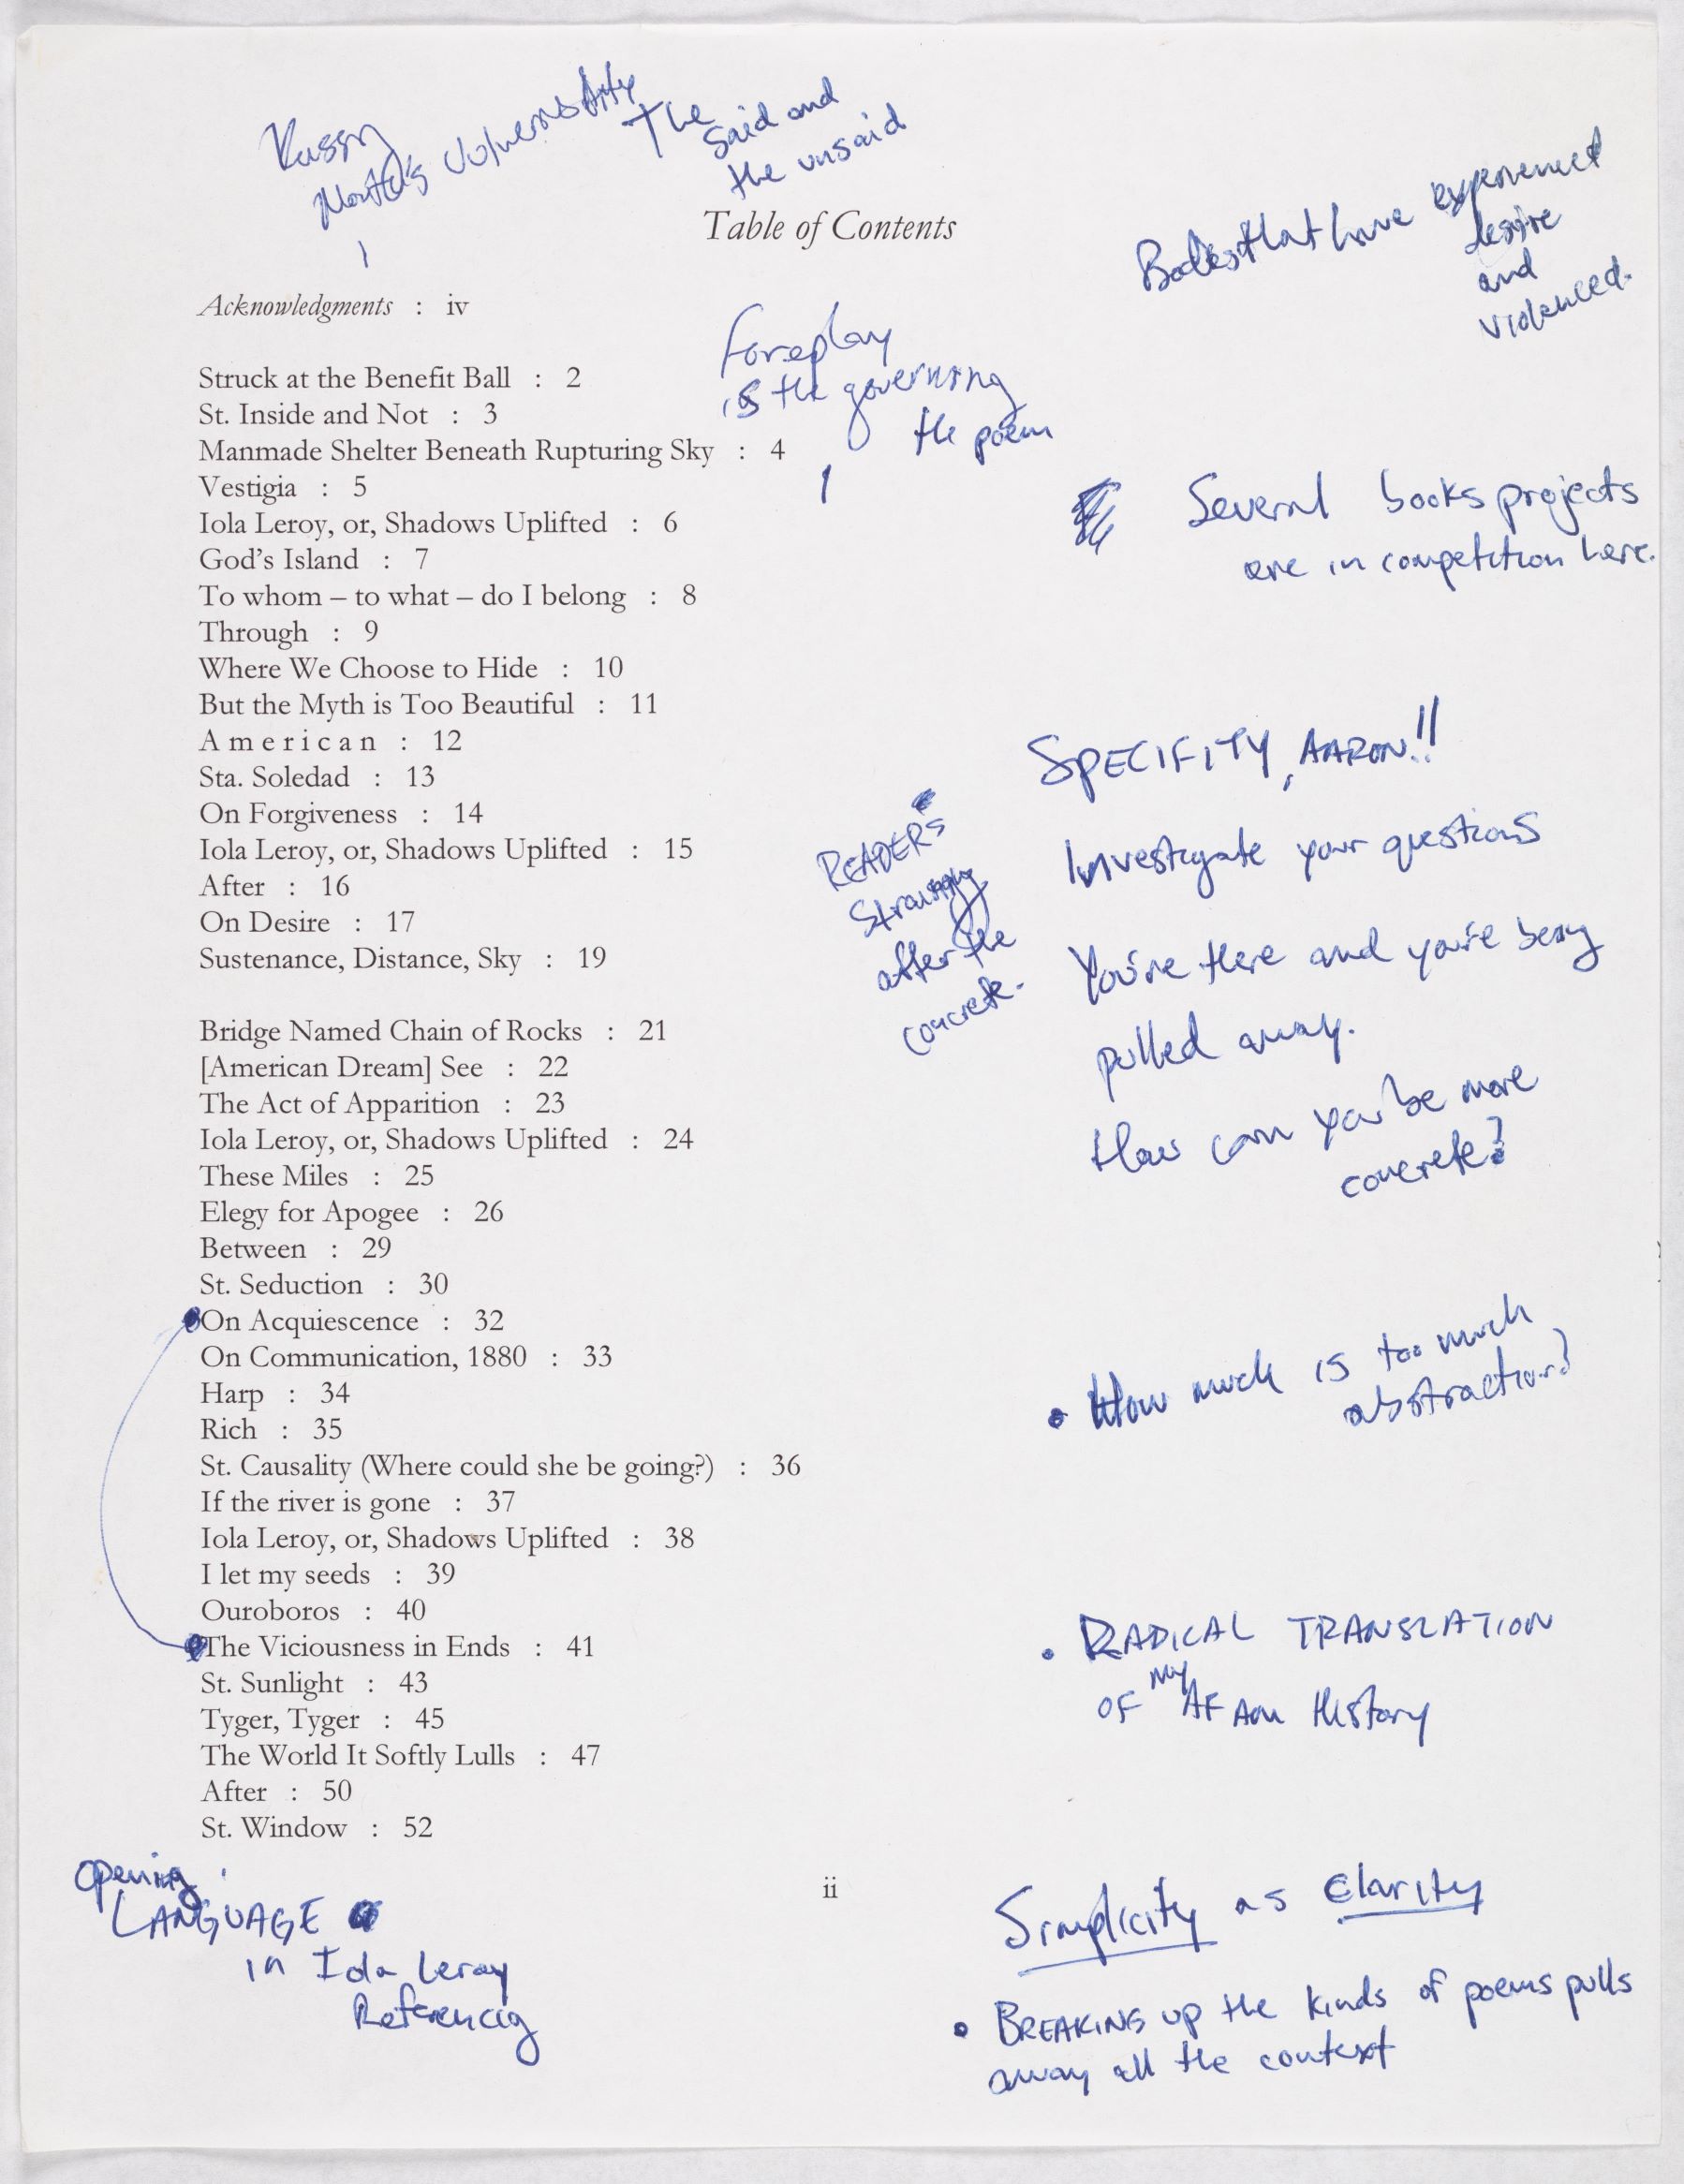 The
said and
the unsaid
Table of Contents
Bodies that have experienced
desire
and
violenced.
Acknowledgments : iv
Foreplay
is the governing
the poem
Struck at the Benefit Ball : 2
St. Inside and Not : 3
Manmade Shelter Beneath Rupturing Sky : 4
Vestigia : 5
Iola Leroy, or, Shadows Uplifted : 6
God's Island : 7
To whom – to what – do I belong : 8
Through : 9
Where We Choose to Hide : 10
But the Myth is Too Beautiful : 11
American : 12
Sta. Soledad : 13
On Forgiveness : 14
Iola Leroy, or, Shadows Uplifted : 15
After : 16
On Desire : 17
Sustenance, Distance, Sky : 19
Several books projects
are in competition here.
SPECIFITY, AARON!!
READERS
after the
concrete.
Investigate your questions
You're there and you're being
pulled away.
How can you be more
concrete?
Bridge Named Chain of Rocks : 21
[American Dream] See : 22
The Act of Apparition : 23
Iola Leroy, or, Shadows Uplifted : 24
These Miles : 25
Elegy for Apogee : 26
Between : 29
St. Seduction : 30
On Acquiescence : 32
On Communication, 1880 : 33
Harp : 34
Rich : 35
St. Causality (Where could she be going?) : 36
If the river is gone : 37
Iola Leroy, or, Shadows Uplifted : 38
I let my seeds : 39
Ouroboros : 40
The Viciousness in Ends : 41
St. Sunlight : 43
Tyger, Tyger : 45
The World It Softly Lulls : 47
After : 50
St. Window : 52
• How much is too much
abstraction?
• RADICAL TRANSLATION
OF my AF Am History
opening
LANGUAGE
in Iola Leroy
Referencing
ii
Simplicity as clarity
• BREAKING up the kinds of poems pulls
away all the context